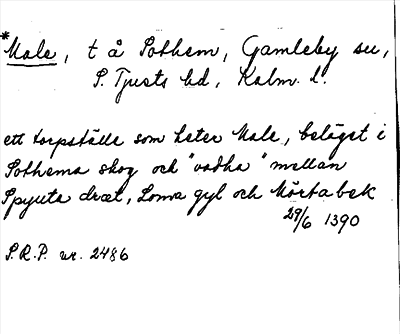 *Male, t å Pothem, Gamleby sn,
S. Tjusts hd, Kalm. l.
ett torpställe som heter Male, beläget i
Pothema skog och "vadha" mellan
Spyuta dræt, Loma gyl och Mörtabek
29/6 1390
S.R.P. nr. 2486